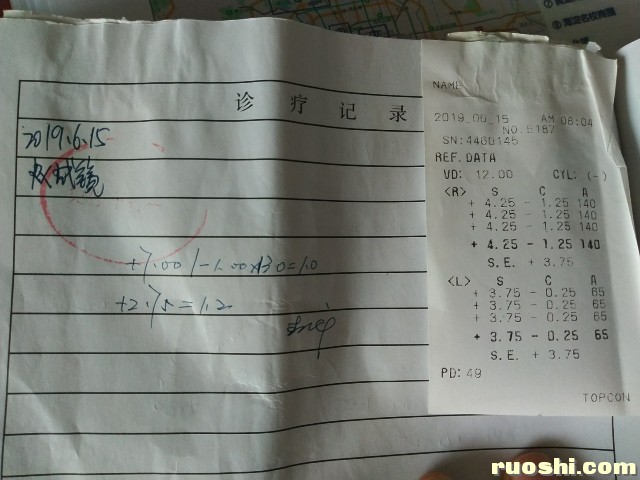 诊疗记录
2019.6.15
复试镜
+2.75=1.2
NAME
2019_06_15 AM 08:04
NO.5187
SN:4460145
REF.DATA
VD: 12.00 CYL: (-)
<R> S C A
+ 4.25 - 1.25 140
+ 4.25 - 1.25 140
+ 4.25 - 1.25 140
+ 4.25 - 1.25 140
S.E. + 3.75
<L> S C A
+ 3.75 - 0.25 65
+ 3.75 - 0.25 65
+ 3.75 - 0.25 65
+ 3.75 - 0.25 65
S.E. + 3.75
PD: 49
TOPCON
ruoshi.com